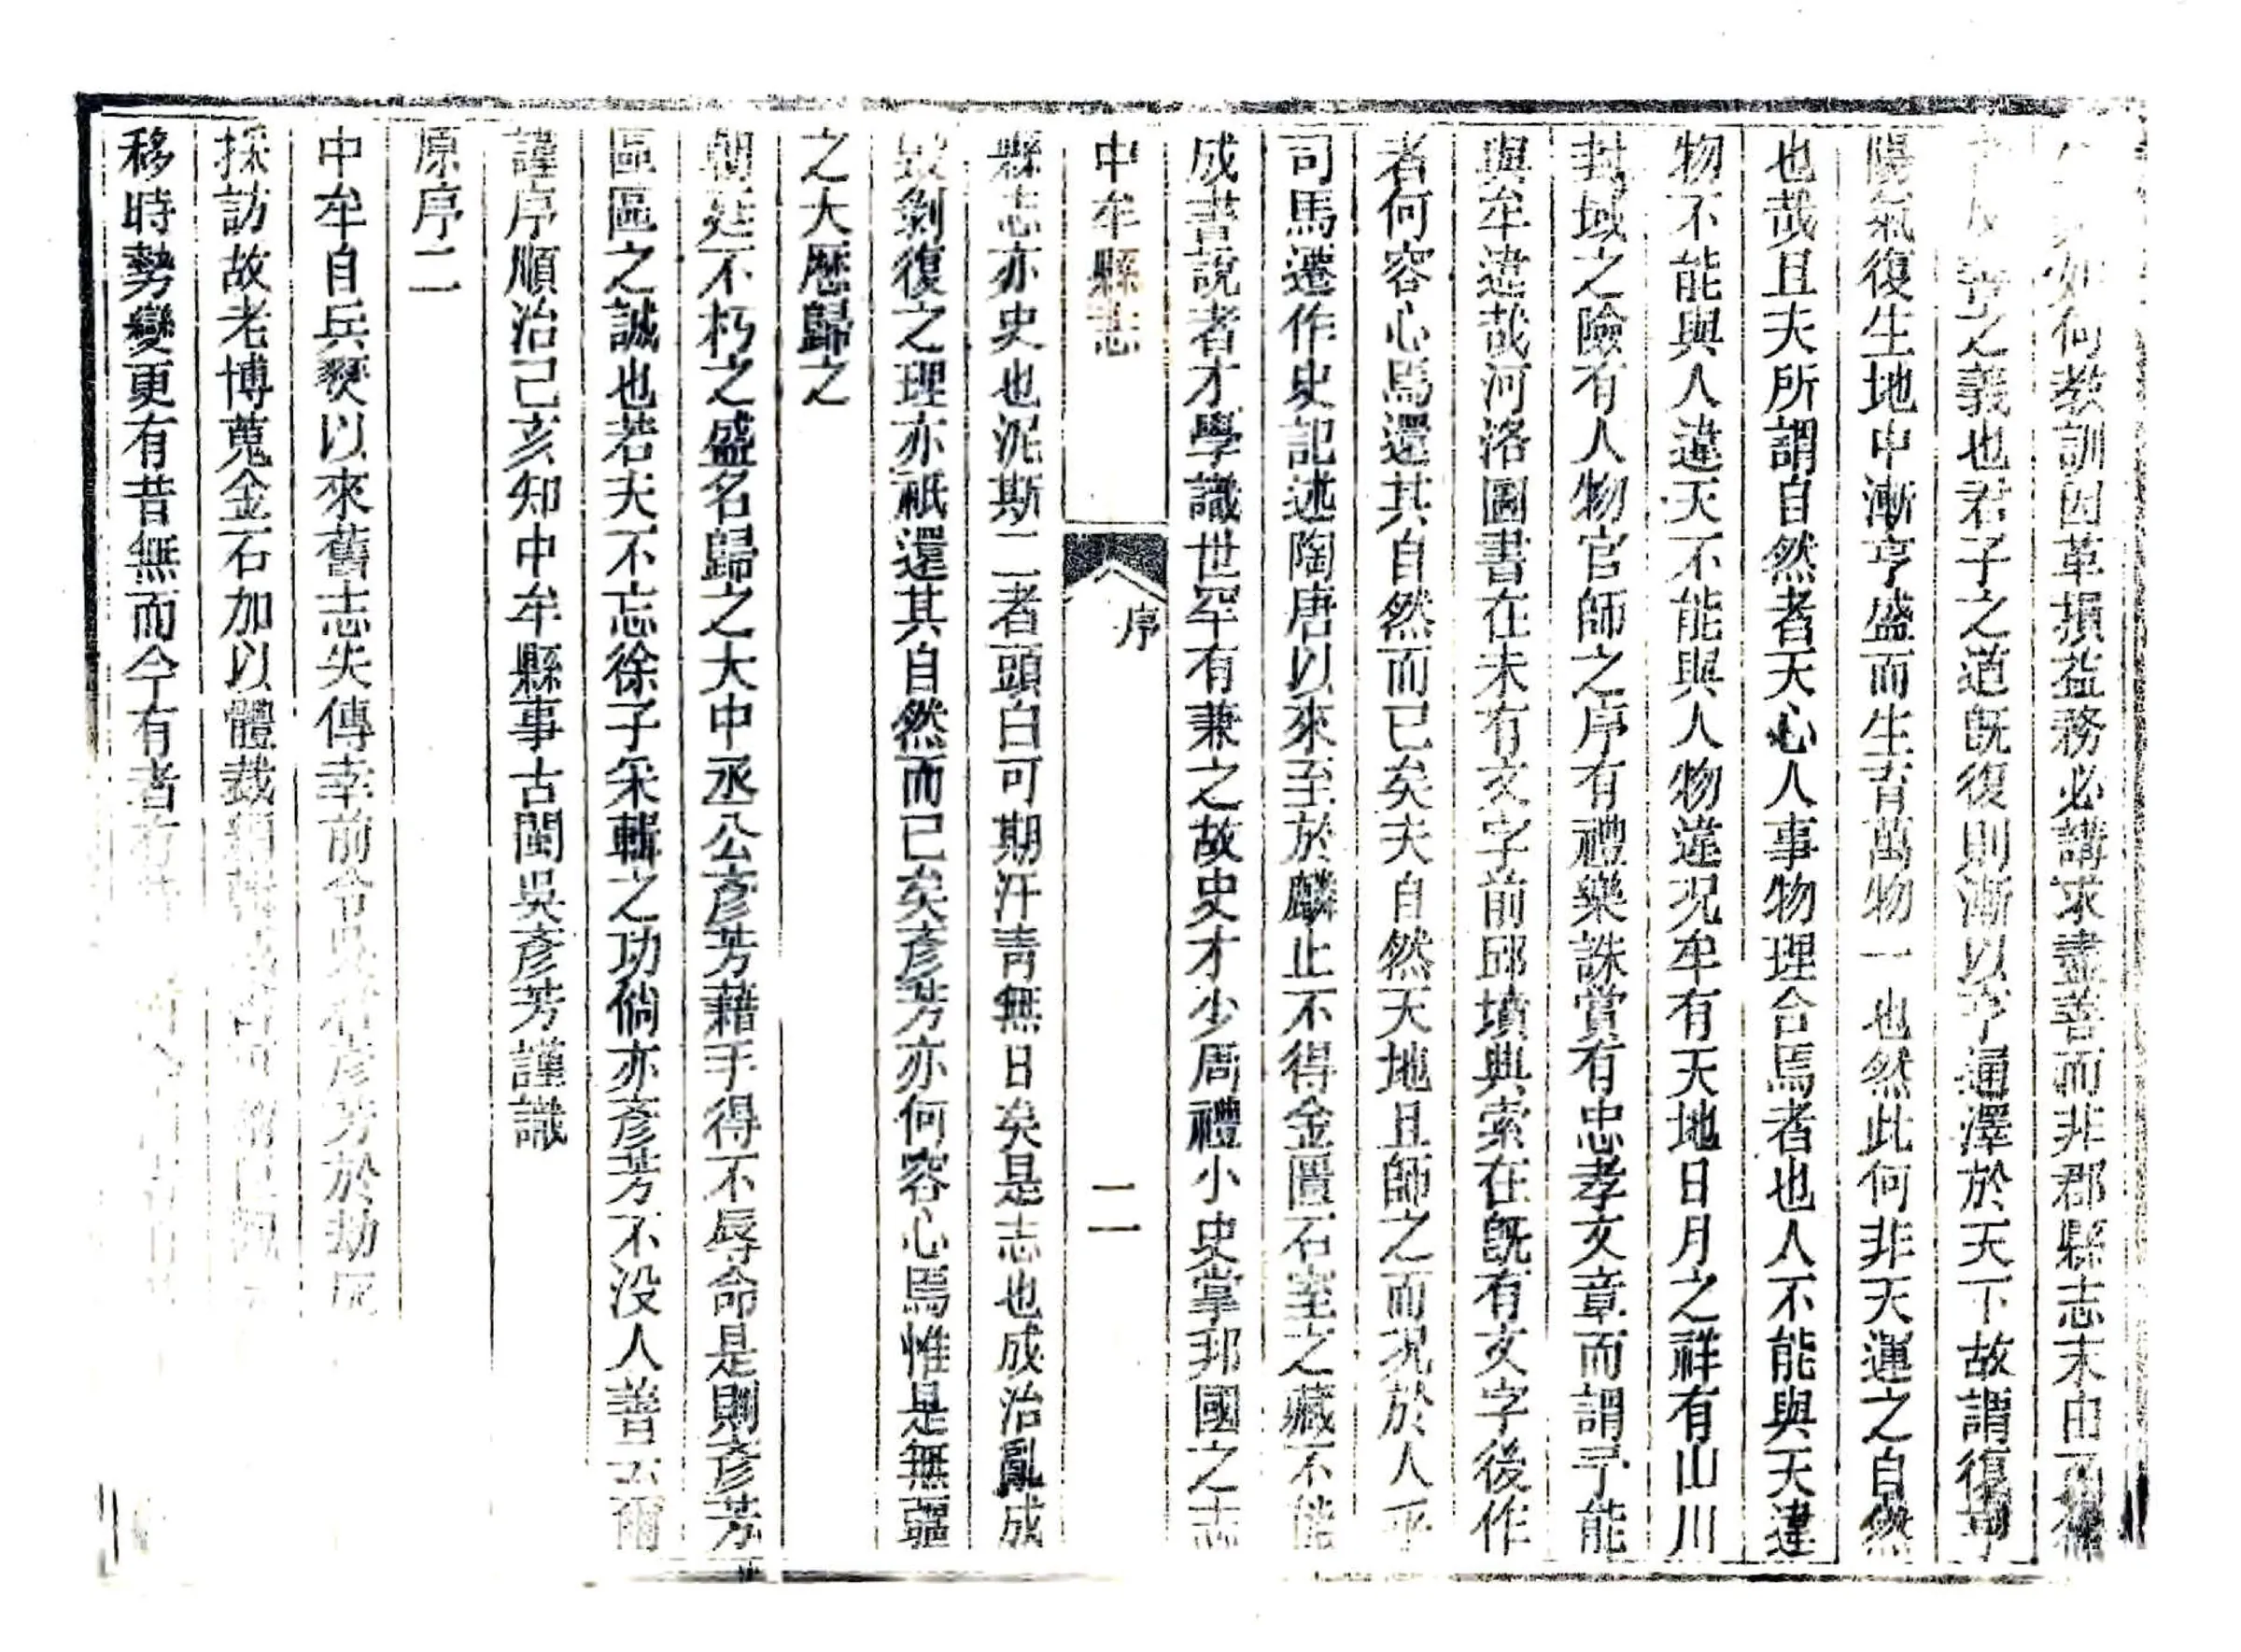 如何教訓因革損益務必講求盡善而非郡縣志末由
之義也君子之道旣復則漸以亨通澤於天下故謂復
陽氣復生地中漸亨盛而生育萬物一也然此何非天運之自然
也哉且夫所謂自然者天心人事物理合焉者也人不能與天違
物不能與人違天不能與人物違况牟有天地日月之祥有山川
封域之險有人物官師之序有禮樂誅賞有忠孝文章而謂予能
與牟違哉河洛圖書在未有文字前邱墳典索在旣有文字後作
者何容心焉還其自然而已矣夫自然天地且師之而况於人乎
司馬遷作史記述陶唐以來至於麟止不得金匱石室之藏不能
成書說者才學識世罕有兼之故史才少周禮小史掌邦國之志
中牟縣志
序
二
縣志亦史也泥斯二者頭白可期汗靑無日矣是志也成治亂成
毀剝復之理亦祇還其自然而已矣彥芳亦何容心焉惟是無疆
之大歷歸之
朝廷不朽之盛名歸之大中丞公彥芳藉手得不辱命是則彥芳
區區之誠也若夫不忘徐子采輯之功倘亦彥芳不没人善云爾
謹序順治己亥知中牟縣事古閩吳彥芳謹識
原序二
中牟自兵燹以來舊志失傳幸前令吳君彥芳於劫灰
採訪故老博蒐金石加以體裁
移時勢變更有昔無而今有者有